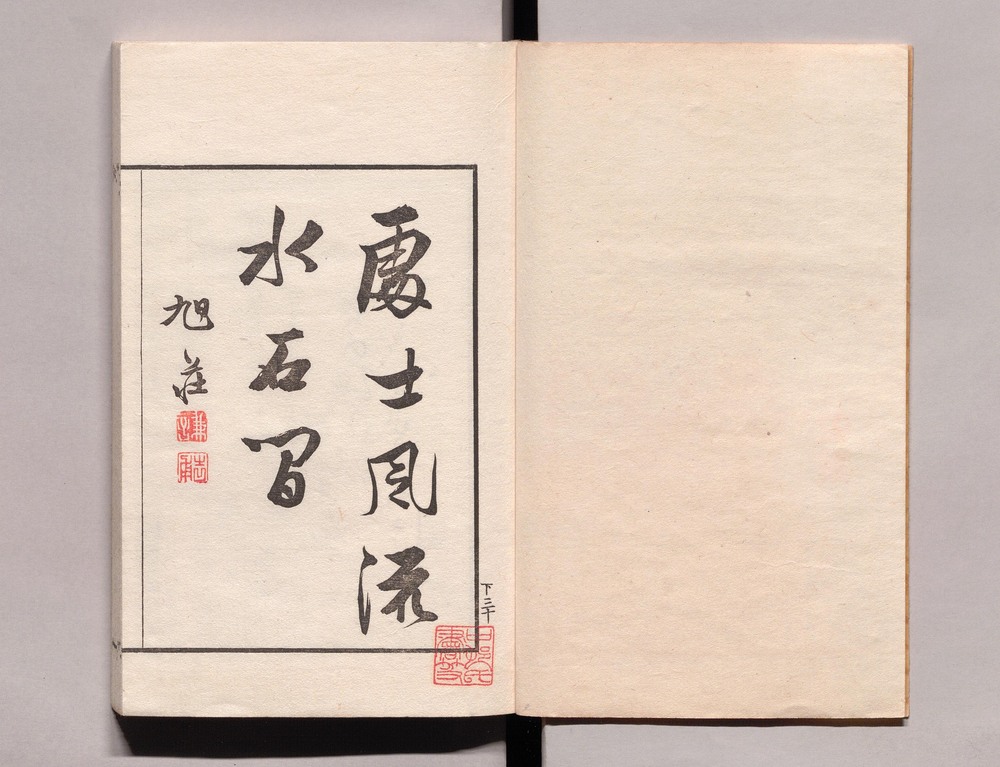 處士風流
水石間
旭莊
謙吉
下三十